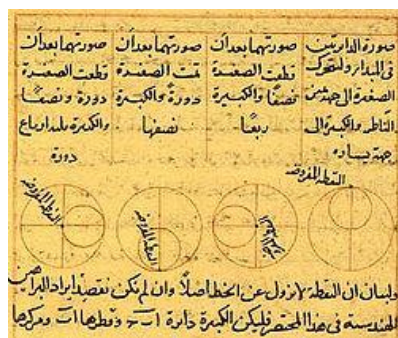 صورة الدايرتين
فى المبدا ولتتحرك
الصغيرة الى جهة
الناظر والكبيرة الى
جهة يساره
صورتهما بعد ان
قطعت الصغيرة
نصفا والكبيرة
ربعا
صورتهما بعد ان
تمت الصغيرة
دورة والكبيرة
نصفها
صورتهما بعد ان
قطعت الصغيرة
دورة ونصفا
والكبيرة ثلثة ارباع
دورة
النقطة المفروضة
النقطة المفروضة
النقطة المفروضة
النقطة المفروضة
ولبيان ان النقطة لا تزول عن الخط اصلا وان لم نكن نقصد ايراد البراهين
الهندسية فى هذا المختصر فليكن الكبيرة دايرة ا ب وقطرها ا ب ومركزها